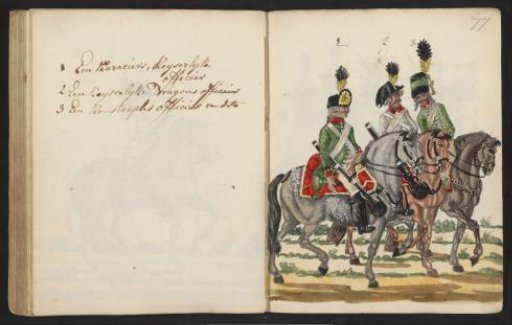 1 Een Kurassiers, Keyserlyke
officier
2 Een Keyserlyke Dragons officier
3 Een officier
1 2 3
77